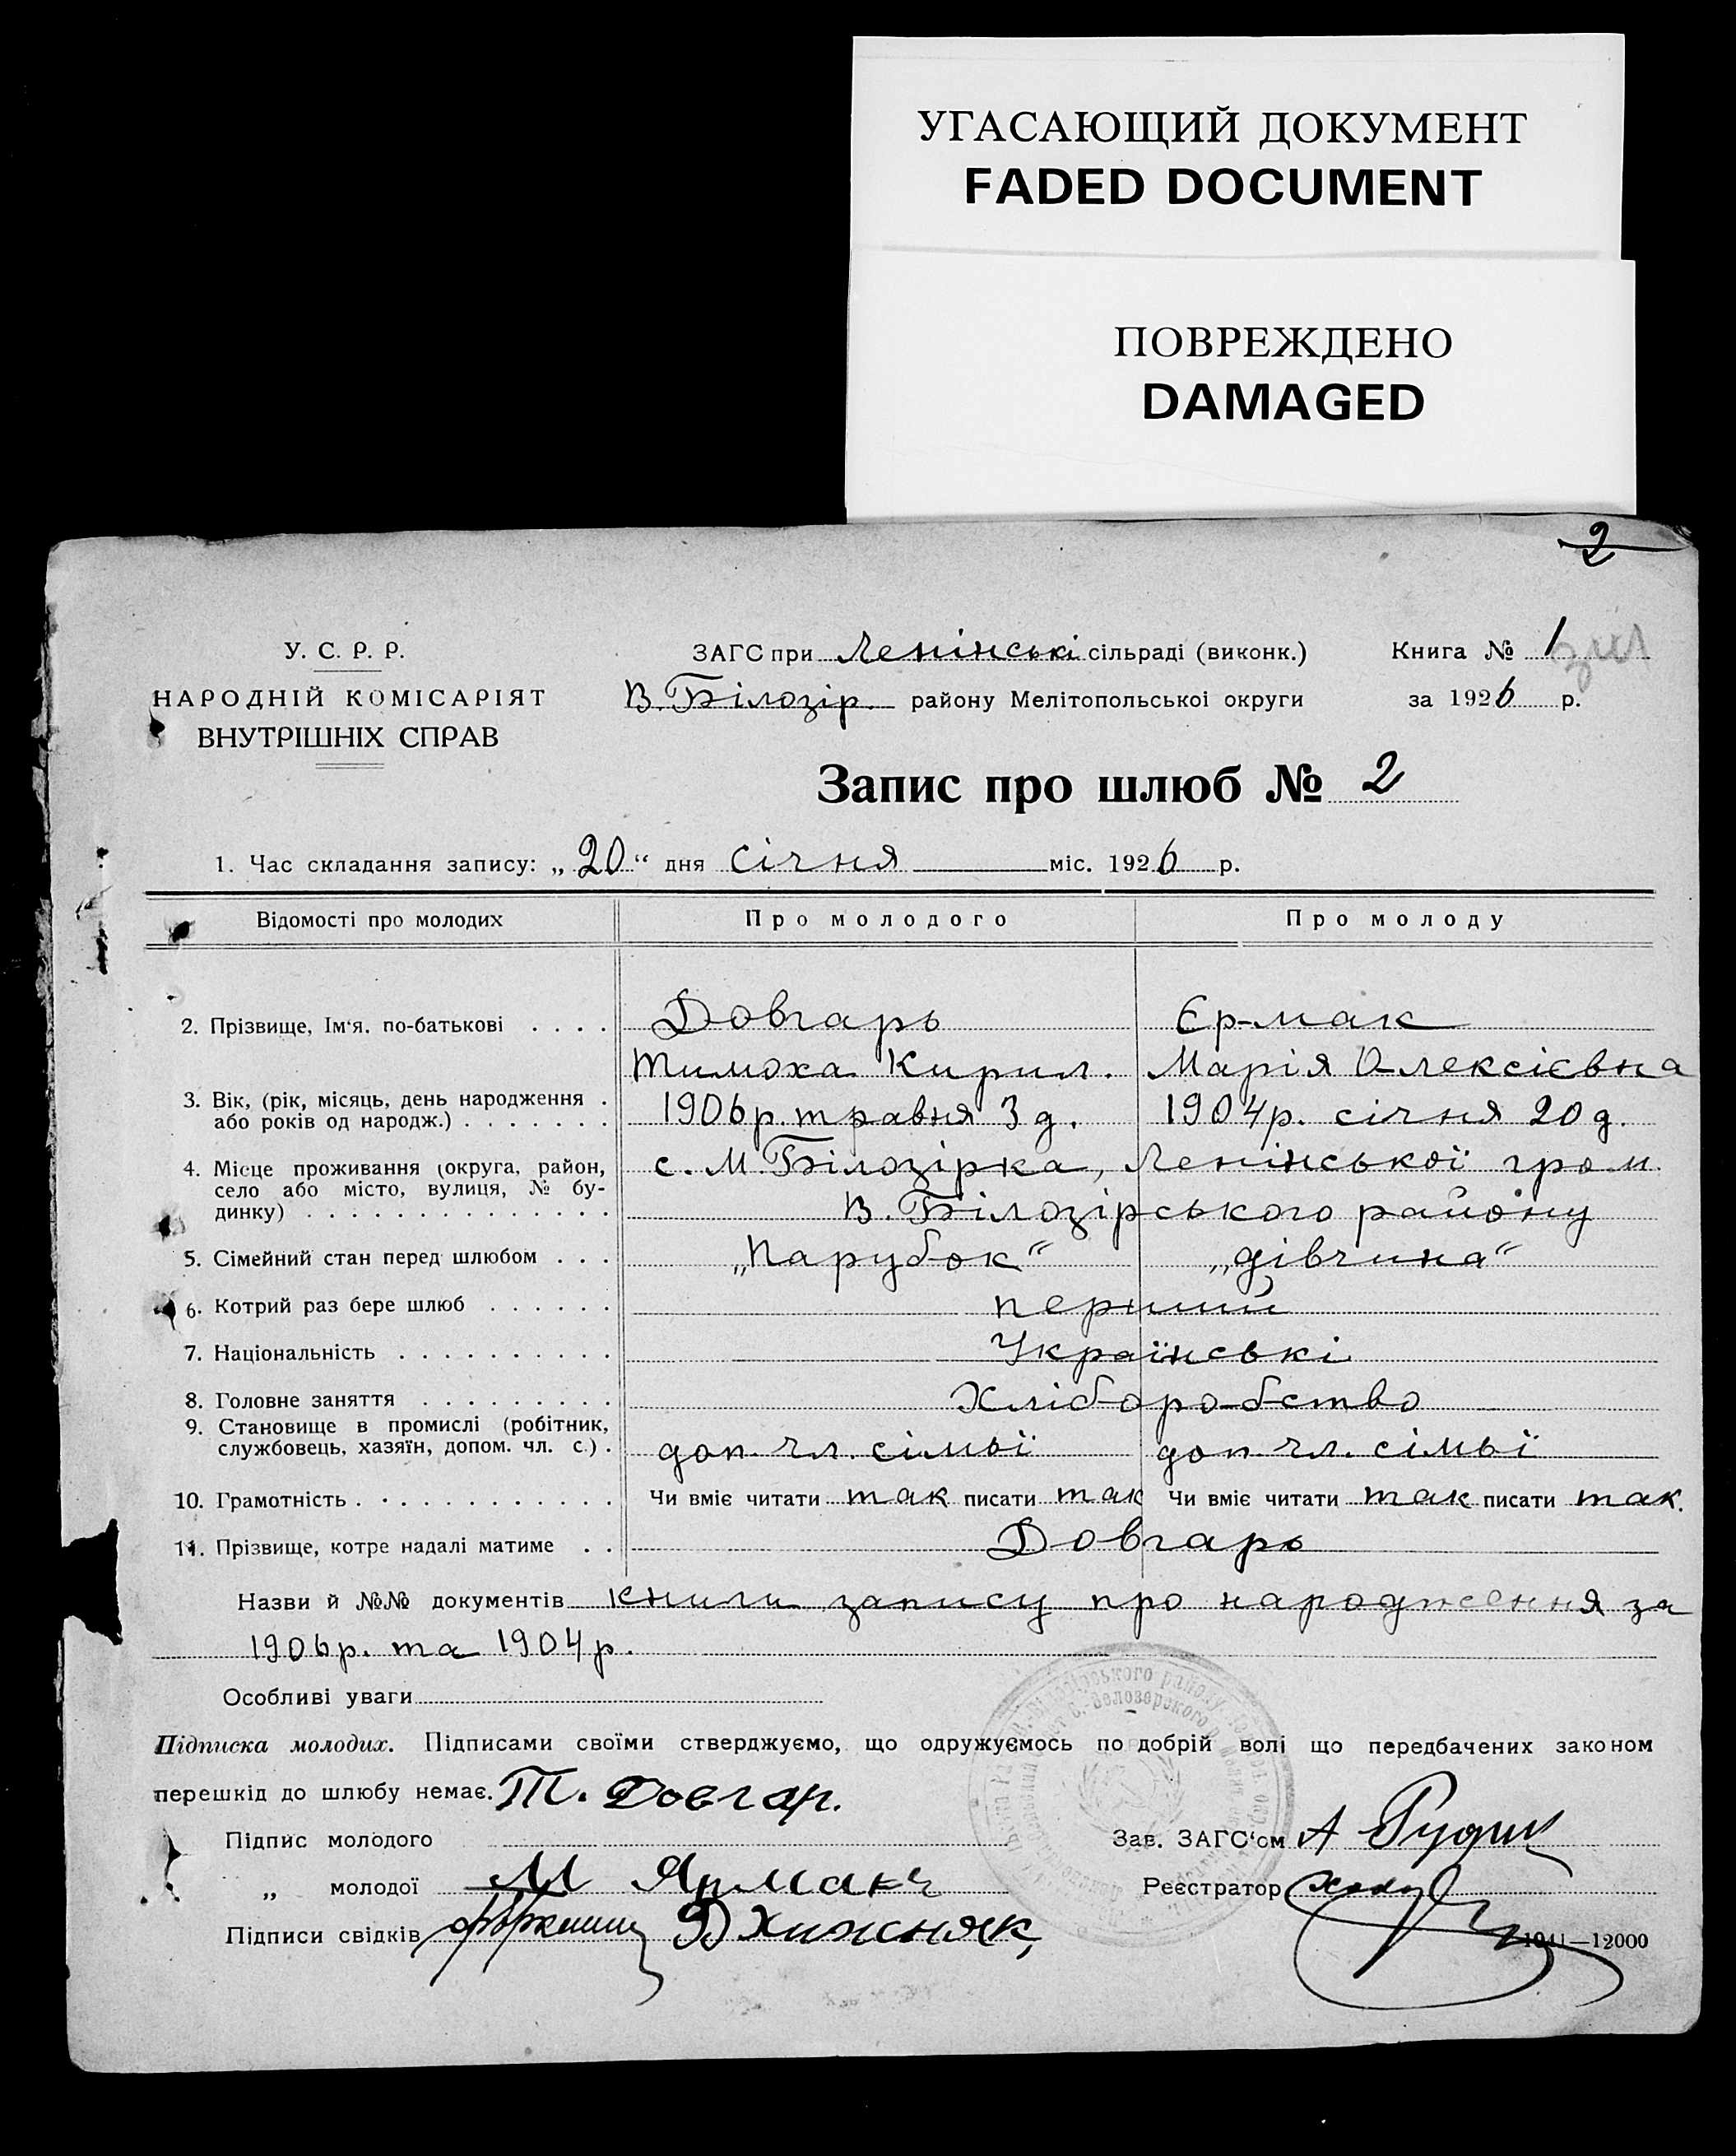 УГАСАЮЩИЙ ДОКУМЕНТ
FADED DOCUMENT
ПОВРЕЖДЕНО
DAMAGED
2
У. С. Р. Р.
НАРОДНІЙ КОМІСАРІЯТ
ВНУТРІШНІХ СПРАВ
ЗАГС при Ленінські сільраді (виконк.)
В. Білозір. району Мелітопольської округи
Книга № 1
за 1926 р.
Запис про шлюб № 2
1. Час складання запису: „20“ дня січня міс. 1926 р.
Відомості про молодих Про молодого Про молоду
2. Прізвище, Ім‘я. по-батькові . . . . Довгарь Єр-мак
Тимоха Кирил. Марія Олексієвна
3. Вік, (рік, місяць, день народження .
або років од народж.) . . . . . . . 1906р. травня 3 д. 1904р. січня 20 д.
4. Місце проживання (округа, район,
село або місто, вулиця, № бу-
динку) . . . . . . . . . . . . . .
с. М. Білозірка, Ленінської гром.
В. Білозірського району
5. Сімейний стан перед шлюбом . . . „Парубок“ „дівчина“
6. Котрий раз бере шлюб . . . . . . перший
7. Національність . . . . . . . . . . Українські
8. Головне заняття . . . . . . . . . Хліборобство
9. Становище в промислі (робітник,
службовець, хазяїн, допом. чл. с.) . доп. чл. сімьї доп. чл. сімьї
10. Грамотність . . . . . . . . . . . . Чи вміє читати так писати так Чи вміє читати так писати так.
11. Прізвище, котре надалі матиме . . Довгарь
Назви й №№ документів книги запису про народження за
1906р. та 1904р.
Особливі уваги
Підписка молодих. Підписами своїми стверджуємо, що одружуємось по добрій волі що передбачених законом
перешкід до шлюбу немає. Т. Довгар.
Підпис молодого
„ молодої М Ярмакъ
Підписи свідків Д Хижсняк,
Зав. ЗАГС‘ом А Рудик
Реєстратор
1941—12000